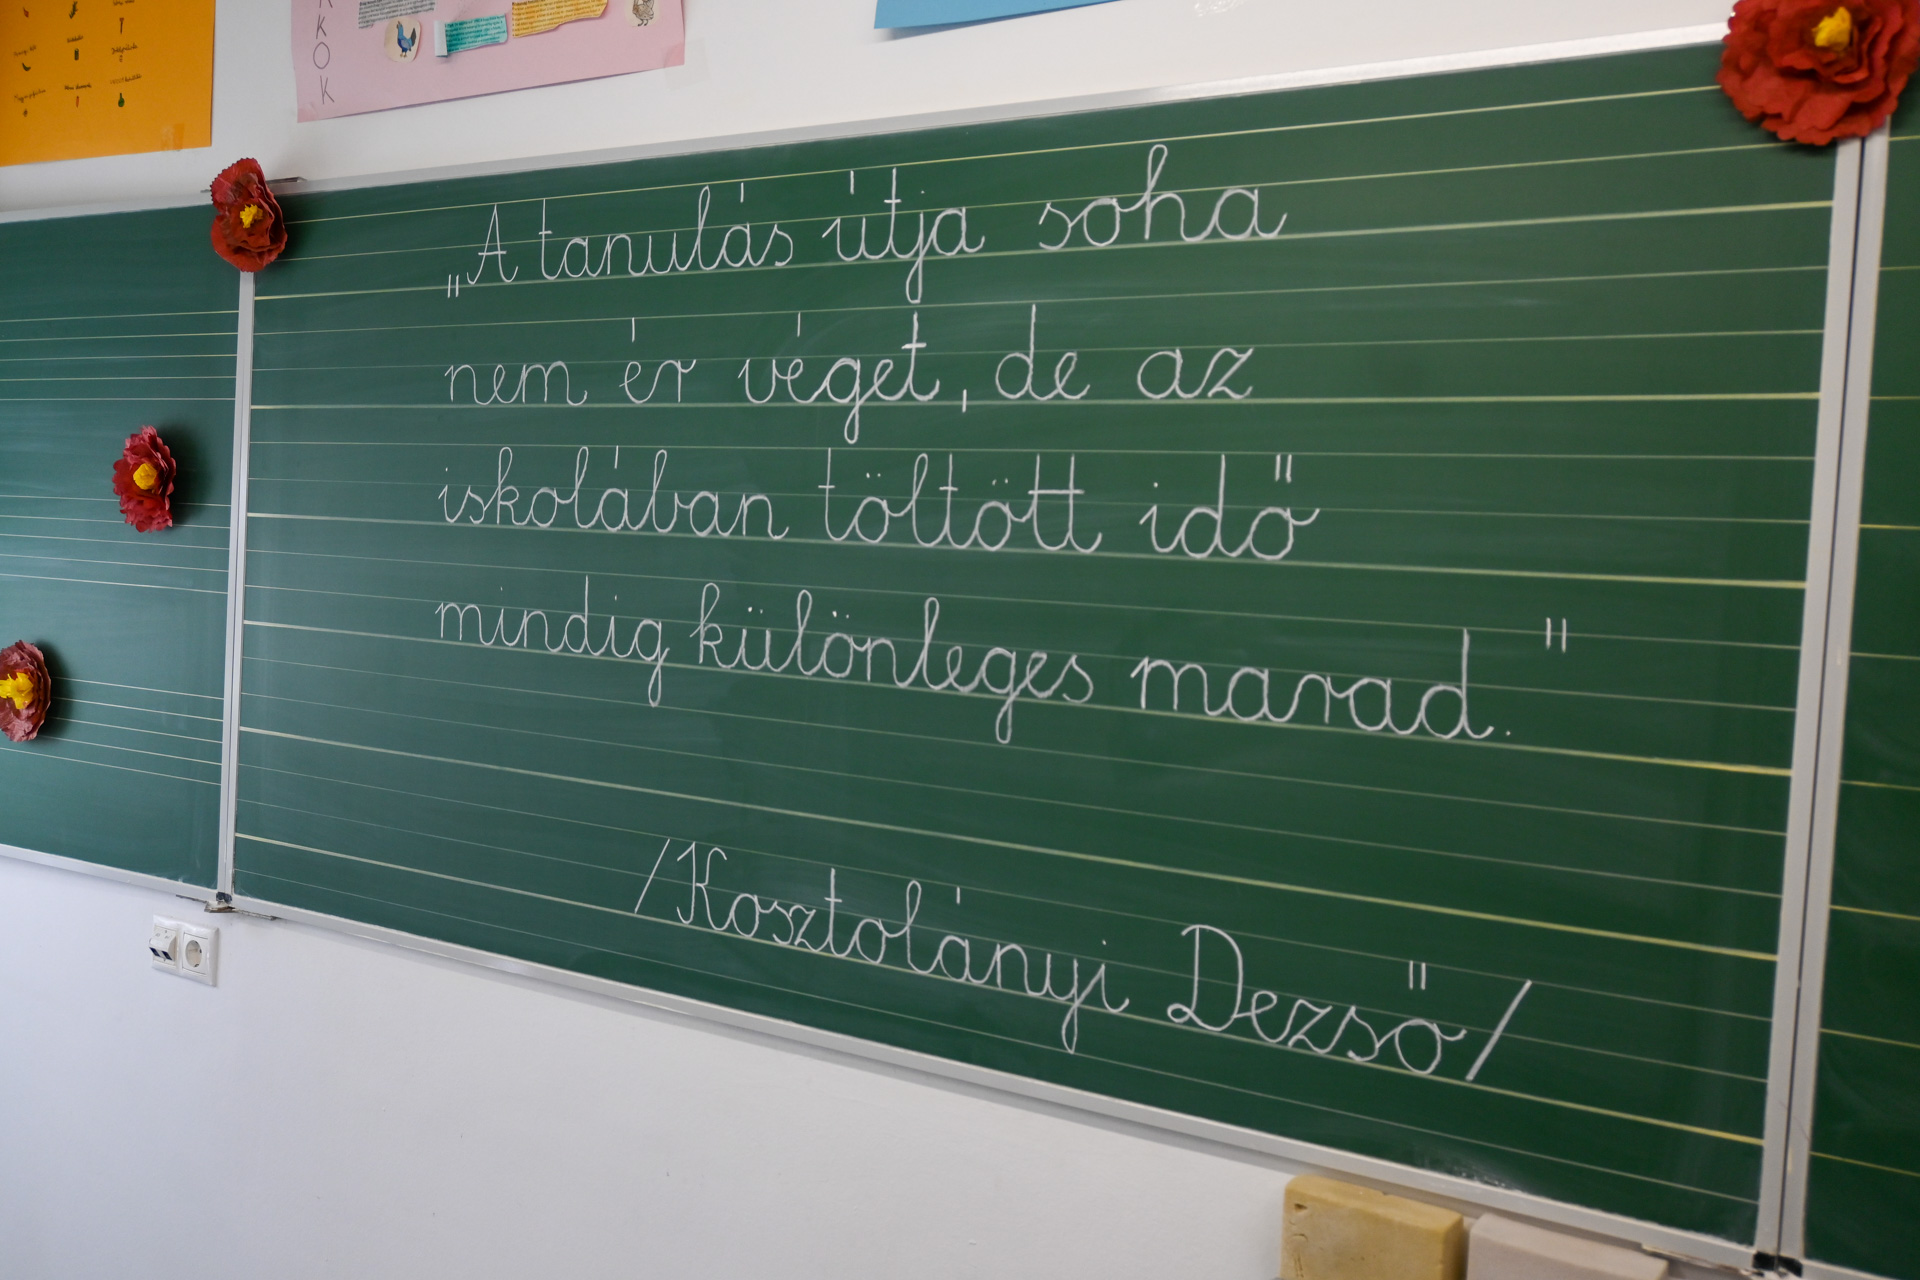 KOK
„A tanulás útja soha
nem ér véget, de az
iskolában töltött idő
mindig különleges marad."
/Kosztolányi Dezső/